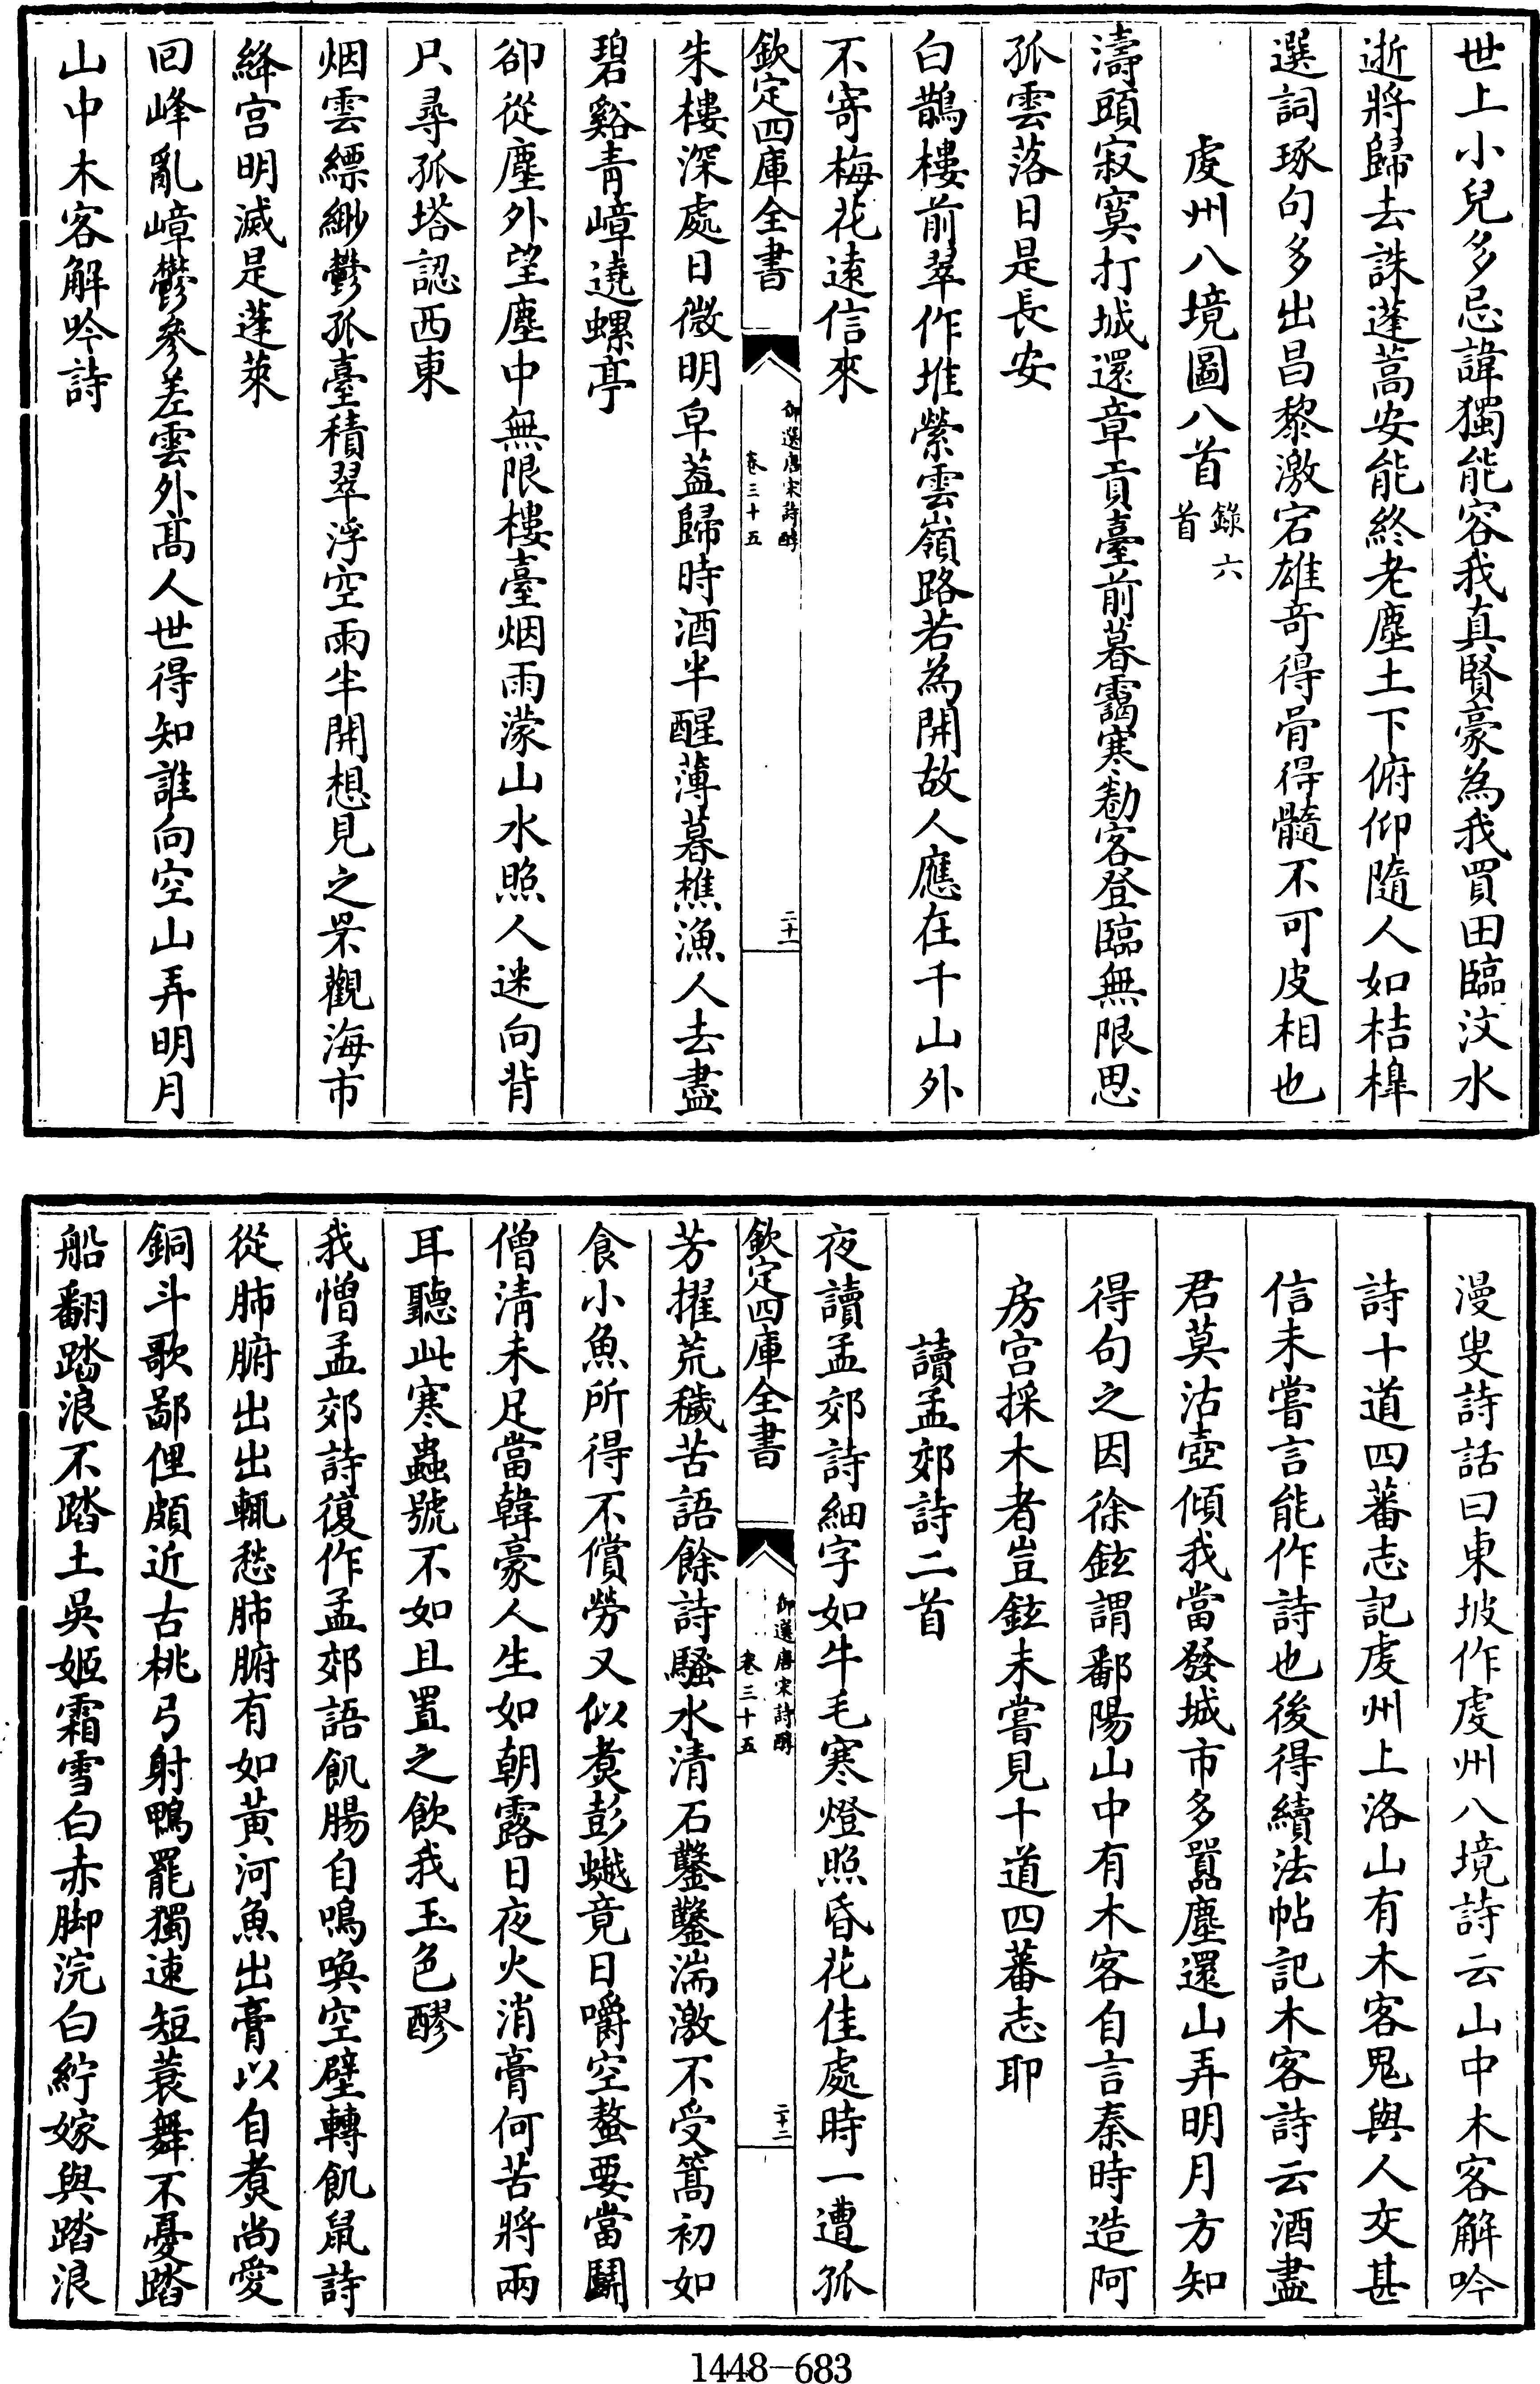 世上小兒多忌諱獨能容我真賢豪為我買田臨汶水
逝將歸去誅蓬蒿安能終老塵土下俯仰隨人如桔槔
選詞琢句多出昌黎激宕雄奇得骨得髓不可皮相也
虔州八境圖八首錄六首
濤頭寂寞打城還章貢臺前暮靄寒勌客登臨無限思
孤雲落日是長安
白鵲樓前翠作堆縈雲嶺路若為開故人應在千山外
不寄梅花遠信來
欽定四庫全書
御選唐宋詩醇
卷三十五
二十一
朱樓深處日微明皁蓋歸時酒半醒薄暮樵漁人去盡
碧谿青嶂遶螺亭
卻從塵外望塵中無限樓臺烟雨濛山水照人迷向背
只尋孤塔認西東
烟雲縹緲鬱孤臺積翠浮空雨半開想見之罘觀海市
絳宮明滅是蓬萊
回峰亂嶂鬱參差雲外高人世得知誰向空山弄明月
山中木客解吟詩
漫叟詩話曰東坡作虔州八境詩云山中木客解吟
詩十道四蕃志記虔州上洛山有木客鬼與人交甚
信未嘗言能作詩也後得續法帖記木客詩云酒盡
君莫沽壺傾我當發城市多囂塵還山弄明月方知
得句之因徐鉉謂鄱陽山中有木客自言秦時造阿
房宮採木者豈鉉未嘗見十道四蕃志耶
讀孟郊詩二首
夜讀孟郊詩細字如牛毛寒燈照昏花佳處時一遭孤
欽定四庫全書
御選唐宋詩醇
卷三十五
二十二
芳擢荒穢苦語餘詩騷水清石鑿鑿湍激不受篙初如
食小魚所得不償勞又似煑彭䖦竟日嚼空螯要當鬭
僧清未足當韓豪人生如朝露日夜火消膏何苦將兩
耳聽此寒蟲號不如且置之飲我玉色醪
我憎孟郊詩復作孟郊語飢腸自鳴喚空壁轉飢鼠詩
從肺腑出出輒愁肺腑有如黃河魚出膏以自煑尚愛
銅斗歌鄙俚頗近古桃弓射鴨罷獨速短蓑舞不憂踏
船翻踏浪不踏土吳姬霜雪白赤脚浣白紵嫁與踏浪
1448—683